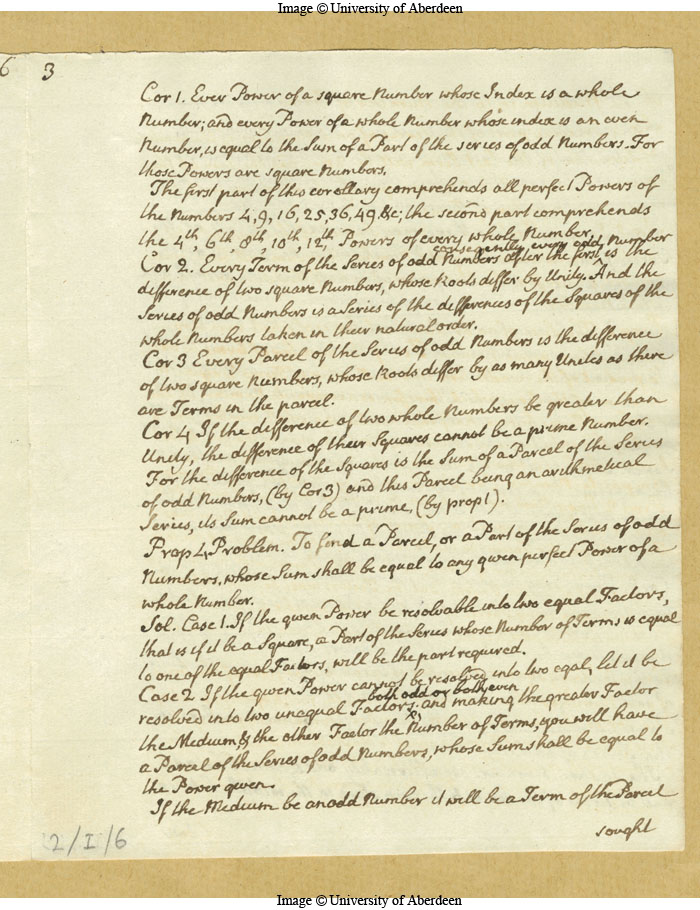 Image © University of Aberdeen
6 3
Cor 1. Ever Power of a square Number whose Index is a whole
Number; and every Power of a whole Number whose index is an even
Number, is equal to the Sum of a Part of the series of odd Numbers. For
those Powers are square Numbers.
The first part of this corollary comprehends all perfect Powers of
the Numbers 4, 9, 16, 25, 36, 49 &c; the second part comprehends
the 4th, 6th, 8th, 10th, 12th, Powers of every whole Number.
consequently every odd Number
Cor 2. Every Term of the Series of odd Numbers after the first is the
difference of two square Numbers, whose Roots differ by Unity. And the
Series of odd Numbers is a Series of the differences of the Squares of the
whole Numbers taken in their natural order.
Cor 3 Every Parcel of the Series of odd Numbers is the difference
of two square Numbers, whose Roots differ by as many Unites as there
are Terms in the parcel.
Cor 4 If the difference of two whole Numbers be greater than
Unity, the difference of their Squares cannot be a prime Number.
For the difference of the Squares is the Sum of a Parcel of the Series
of odd Numbers, (by Cor 3) and this Parcel being an arithmetical
Series, its Sum cannot be a prime, (by prop 1).
Prop 4 Problem. To find a Parcel, or a Part of the Series of odd
Numbers, whose Sum shall be equal to any given perfect Power of a
whole Number.
Sol. Case 1. If the given Power be resolvable into two equal Factors,
that is if it be a Square, a Part of the Series whose Number of Terms is equal
to one of the equal Factors, will be the part required.
Case 2 If the given Power cannot be resolved into two egal, let it be
both odd or both even
resolved into two unequal Factors; and making the greater Factor
the Medium, & the other Factor the Number of Terms, you will have
a Parcel of the Series of odd Numbers, whose Sum shall be equal to
the Power given.
If the Medium be an odd Number it will be a Term of the Parcel
sought
2/I/6
Image © University of Aberdeen